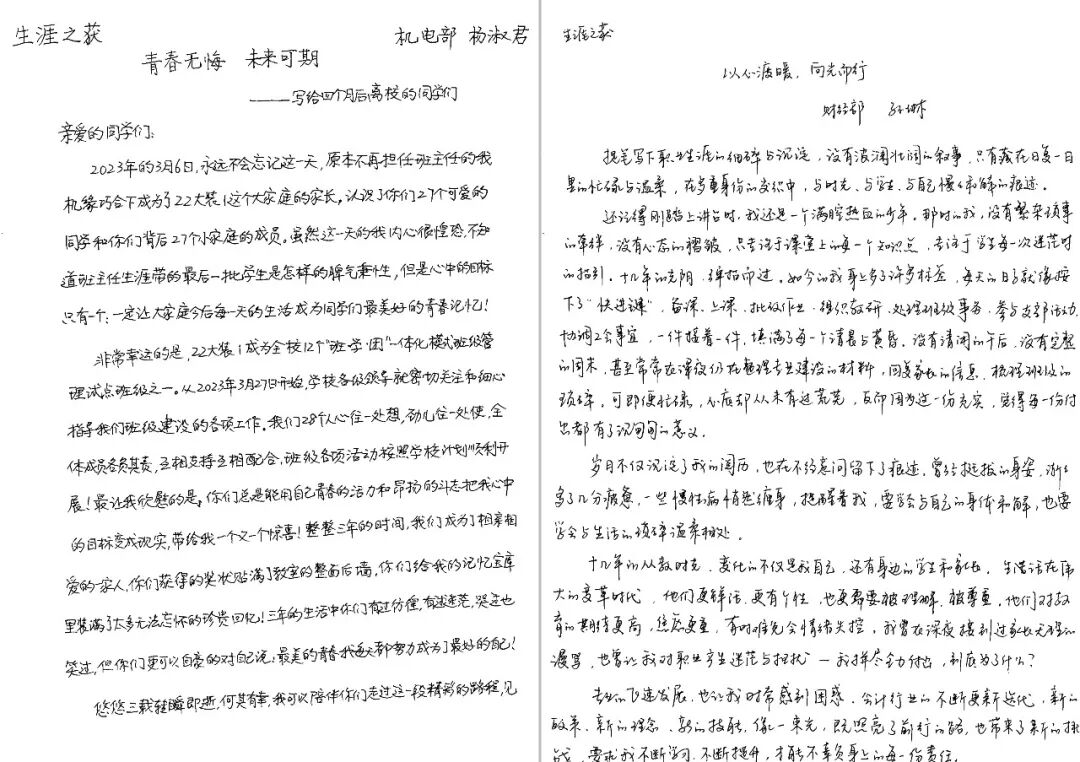 生涯之获
机电部 杨淑君
青春无悔 未来可期
——写给四个月后离校的同学们
亲爱的同学们:
2023年的3月6日,永远不会忘记这一天,原本不再担任班主任的我
机缘巧合下成为了22大装1这个大家庭的家长。认识了你们27个可爱的
同学和你们背后27个小家庭的成员。虽然这一天的我内心很惶恐,不知
道班主任生涯带的最后一批学生是怎样的脾气秉性,但是心中的目标
只有一个:一定让大家庭今后每一天的生活成为同学们最美好的青春记忆!
非常幸运的是,22大装1成为全校12个“班·学·团”一体化模式班级管
理试点班级之一。从2023年3月27日开始,学校各级领导就密切关注和细心
指导我们班级建设的各项工作。我们28个人心往一处想,劲儿往一处使,全
体成员各负其责,互相支持互相配合,班级各项活动按照学校计划顺利开
展!最让我欣慰的是,你们总是能用自己青春的活力和昂扬的斗志把我心中
的目标变成现实,带给我一个又一个惊喜!整整三年的时间,我们成为了相亲相
爱的家人,你们获得的奖状贴满了教室的整面后墙,你们给我的记忆宝库
里装满了太多无法忘怀的珍贵回忆!三年的生活中你们有过彷徨,有过迷茫,哭过也
笑过,但你们更可以自豪的对自己说:最美的青春我每天都努力成为了最好的自己!
悠悠三载转瞬即逝,何其有幸,我可以陪伴你们走过这一段精彩的路程,见
生涯之获
以心渡暖,向光而行
财经部 孙琳
提笔写下职业生涯的细碎与沉淀,没有波澜壮阔的叙事,只有藏在日复一日
里的忙碌与温柔,在多重身份的交织中,与时光、与学生、与自己慢慢和解的痕迹。
还记得刚踏上讲台时,我还是一个满腔热血的少年。那时的我,没有繁杂琐事
的牵绊,没有心态的褶皱,只专注于课堂上的每一个知识点,专注于学生每一次迷茫时
的指引。十几年的光阴,弹指而过。如今的我身上多了许多标签,每天的日子就像按
下了“快进键”,备课、上课、批改作业、组织教研、处理班级事务、参与支部活动、
协调工会事宜,一件接着一件,填满了每一个清晨与黄昏。没有清闲的午后,没有完整
的周末,甚至常常在深夜仍在整理专业建设的材料,回复家长的信息,梳理班级的
琐碎。可即便忙碌,心底却从未有过荒芜,反即因为这一份充实,觉得每一份付
出都有了沉甸甸的意义。
岁月不仅沉淀了我的阅历,也在不经意间留下了痕迹。曾经挺拔的身姿,渐渐
多了几分疲惫,一些慢性病悄然缠身,提醒着我,要学会与自己的身体和解,也要
学会与生活的琐碎温柔相处。
十几年的从教时光,变化的不仅是我自己,还有身边的学生和家长。生活在伟
大的变革时代,他们更鲜活、更有个性,也更需要被理解、被尊重,他们对教
育的期待更高,焦虑更重,有时难免会情绪失控,我曾在深夜接到过家长无理的
谩骂,也曾让我对职业产生迷茫与拉扯—我拼尽全力付出,到底为了什么?
专业的飞速发展,也让我时常感到困惑。会计行业的不断更新迭代,新的
政策、新的理念、新的技能,像一束光,既照亮了前行的路,也带来了新的挑
战,要求我不断学习、不断提升,才能不辜负身上的每一份责任。